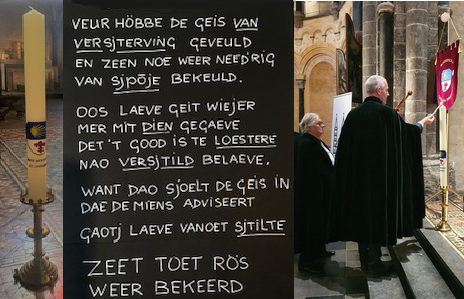 VEUR HÖBBE DE GEIS VAN
VERSJTERVING GEVEULD
EN ZEEN NOE WEER NEED'RIG
VAN SJPÖJE BEKEULD.
OOS LAEVE GEIT WIEJER
MER MIT DIEN GEGAEVE
DET 'T GOOD IS TE LOESTERE
NAO VERSJTILD BELAEVE.
WANT DAO SJOELT DE GEIS IN
DAE DE MIENS ADVISEERT
GAOTJ LAEVE VANOET SJTILTE
ZEET TOET RÖS
WEER BEKEERD